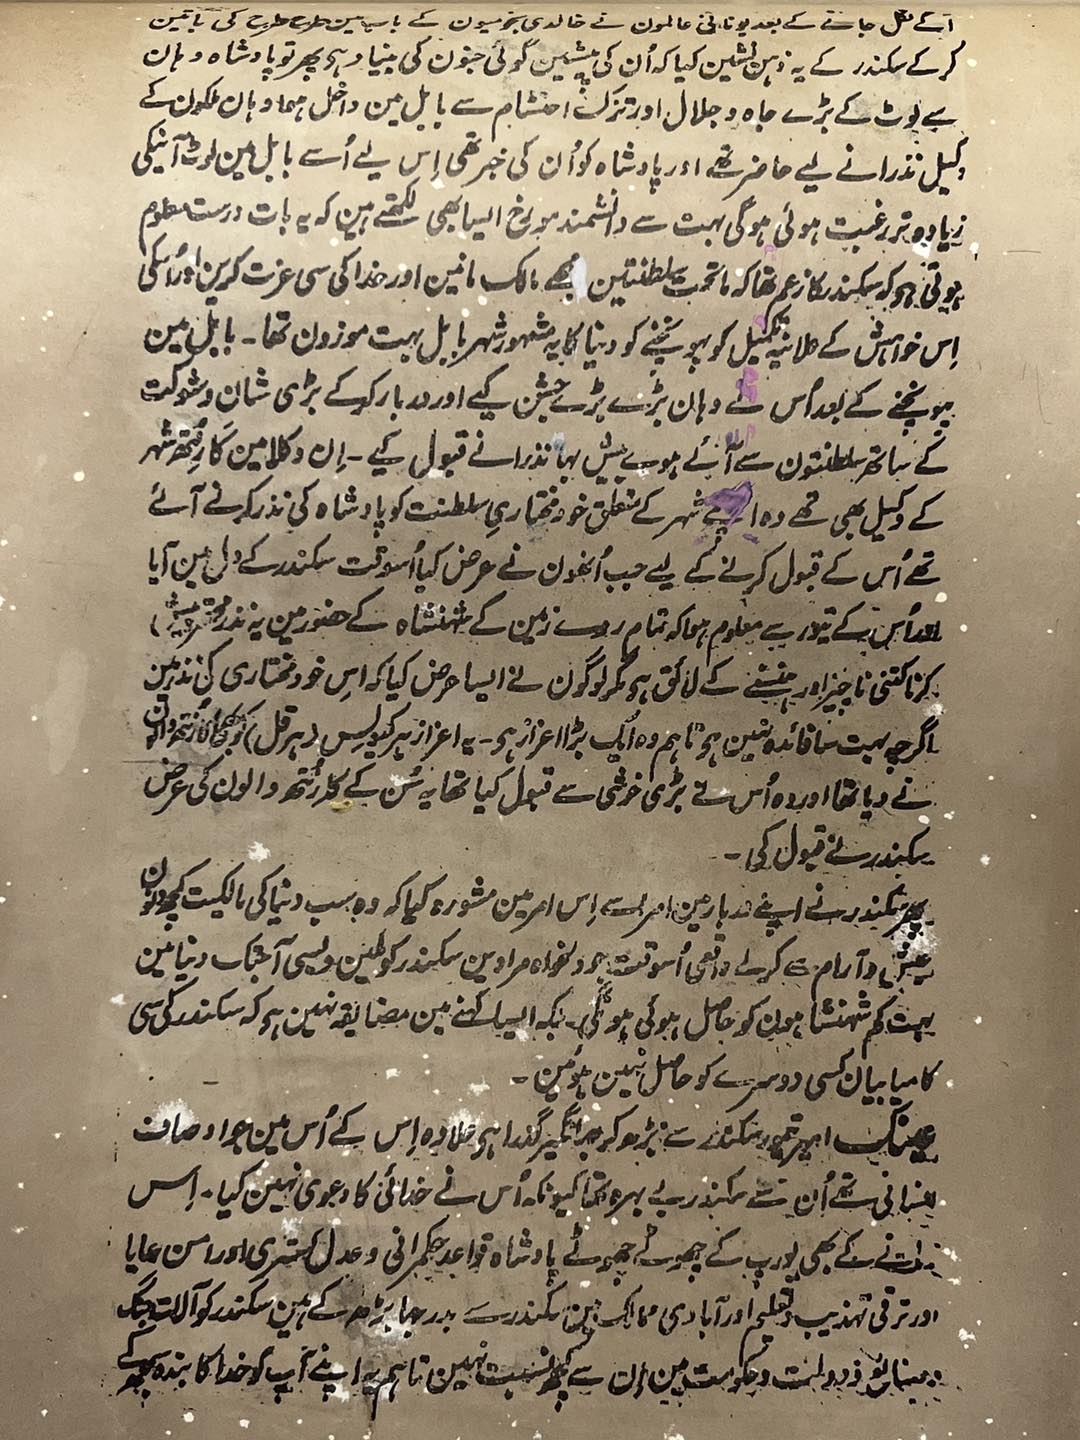 آگے نکل جانے کے بعد یونانی عالمون نے خالدی نجومیون کے باب مین طرح طرح کی باتین
کرکے سکندر کے یہ ذہن نشین کیا کہ اُن کی پیشین گوئی جنون کی بنیاد ہی پھر تو پادشاہ وہان
سے لوٹ کے بڑے جاہ و جلال اور تزک احتشام سے بابل مین داخل ہوا وہان ملکون کے
وکیل نذرانے لیے حاضر تھے اور پادشاہ کو اُن کی خبر تھی اِس لیے اُسے بابل مین لوٹ آنیکی
زیادہ تر رغبت ہوئی ہوگی بہت سے دانشمند مورخ ایسا بھی لکھتے ہین کہ یہ بات درست معلوم
ہوتی ہو کہ سکندر کا زعم تھا کہ ماتحت سلطنتین مجھے مالک مانین اور خدا کی سی عزت کرین اور اُسکی
اِس خواہش کے علانیہ تکمیل کو پہونچنے کو دنیا کا یہ مشہور شہر بابل بہت موزون تھا۔ بابل مین
پہونچنے کے بعد اُس نے وہان بڑے بڑے جشن کیے اور دربار کرکے بڑی شان و شوکت
کے ساتھ سلطنتون سے آئے ہوے بیش بہا نذرانے قبول کیے۔ اِن وکلا مین کارنتھ شہر
کے وکیل بھی تھے وہ اپنے شہر کے متعلق خود مختاریِ سلطنت کو پادشاہ کی نذر کرنے آئے
تھے اُس کے قبول کرنے کے لیے جب اُنھون نے عرض کیا اُسوقت سکندر کے دل مین آیا
اور اُس کے تیور سے معلوم ہوا کہ تمام روے زمین کے شہنشاہ کے حضور مین یہ نذر محقر پیش
کرنا کتنی ناچیز اور ہنسنے کے لائق ہو مگر لوگون نے ایسا عرض کیا کہ اِس خود مختاری کی نذر مین
اگرچہ بہت سا فائدہ نہین ہو تاہم وہ ایک بڑا اعزاز ہو۔ یہ اعزاز ہرکیولیس (ہرقل) کو بھی کارنتھ والون
نے دیا تھا اور وہ اُس نے بڑی خوشی سے قبول کیا تھا یہ سُن کے کارنتھ والون کی عرض
سکندر نے قبول کی۔
پھر سکندر نے اپنے دربار مین امرا سے اِس امر مین مشورہ کیا کہ وہ سب دنیا کی مالکیت کچھ دنون
عیش و آرام سے کرلے واقعی اُسوقت جو دلخواہ مرادین سکندر کو ملین ویسی آجتک دنیا مین
بہت کم شہنشاہون کو حاصل ہوئی ہونگی۔ بلکہ ایسا کہنے مین مضایقہ نہین ہو کہ سکندر کی سی
کامیابیان کسی دوسرے کو حاصل نہین ہوئین۔
بیشک امیر تیمور سکندر سے بڑھ کر جہانگیر گذرا ہو علاوہ اِس کے اُس مین جو اوصاف
انسانی تھے اُن سے سکندر بے بہرہ تھا کیونکہ اُس نے خدائی کا دعوی نہین کیا۔ اِس
زمانے کے بھی یورپ کے چھوٹے چھوٹے پادشاہ قواعد حکمرانی و عدل گستری اور امن رعایا
اور ترقی تہذیب و تعلیم اور آبادی ممالک مین سکندر سے بدرجہا بڑھ کے ہین سکندر کو آلات جنگ
و دولت و حکومت مین اِن سے کچھ نسبت نہین تاہم یہ اپنے آپ کو خدا کا بندہ سمجھ کے